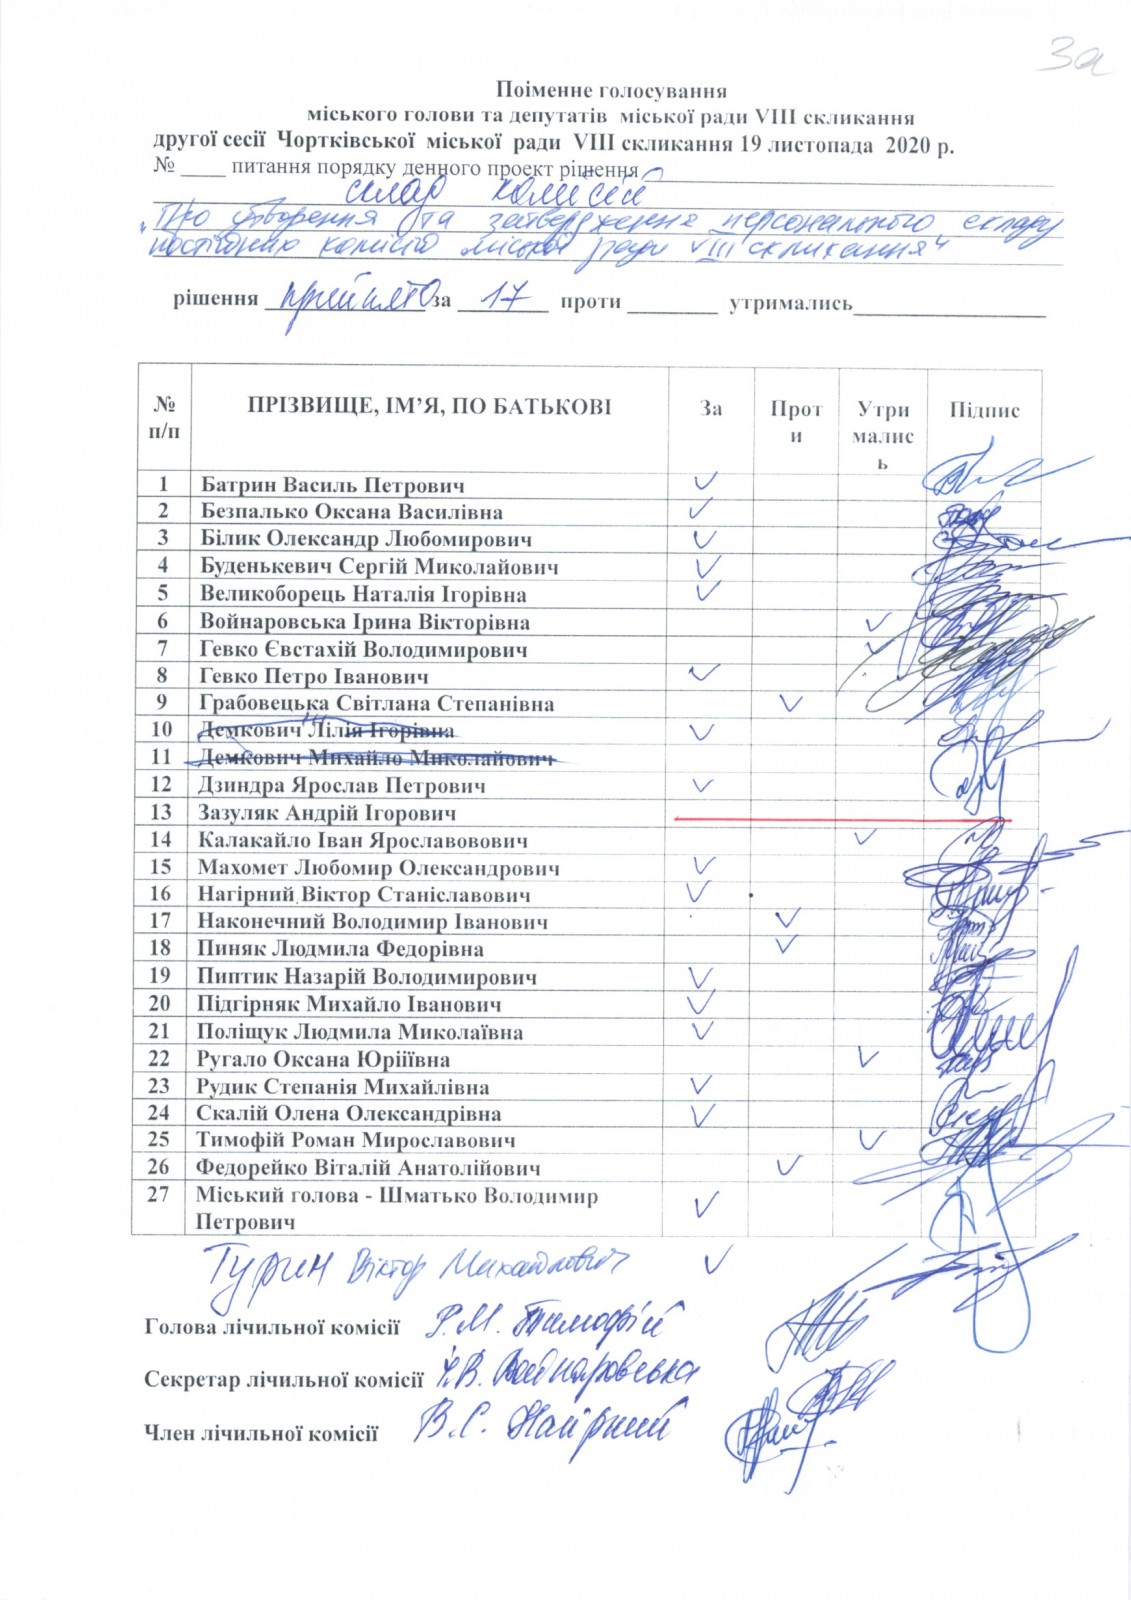 За
Поіменне голосування
міського голови та депутатів міської ради VIII скликання
другої сесії Чортківської міської ради VIII скликання 19 листопада 2020 р.
№ ____ питання порядку денного проект рішення
склад комісій
"Про утворення та затвердження персонального складу
постійних комісій міської ради VIII скликання"
рішення прийнято за 17 проти ________ утримались________________
№ п/п ПРІЗВИЩЕ, ІМ’Я, ПО БАТЬКОВІ За Проти Утримались Підпис
1 Батрин Василь Петрович ✓
2 Безпалько Оксана Василівна ✓
3 Білик Олександр Любомирович ✓
4 Буденькевич Сергій Миколайович ✓
5 Великоборець Наталія Ігорівна ✓
6 Войнаровська Ірина Вікторівна ✓
7 Гевко Євстахій Володимирович ✓
8 Гевко Петро Іванович ✓
9 Грабовецька Світлана Степанівна ✓
10 Демкович Лілія Ігорівна ✓
11 Демкович Михайло Миколайович
12 Дзиндра Ярослав Петрович ✓
13 Зазуляк Андрій Ігорович
14 Калакайло Іван Ярославовович ✓
15 Махомет Любомир Олександрович ✓
16 Нагірний Віктор Станіславович ✓
17 Наконечний Володимир Іванович ✓
18 Пиняк Людмила Федорівна ✓
19 Пиптик Назарій Володимирович ✓
20 Підгірняк Михайло Іванович ✓
21 Поліщук Людмила Миколаївна ✓
22 Ругало Оксана Юріїївна ✓
23 Рудик Степанія Михайлівна ✓
24 Скалій Олена Олександрівна ✓
25 Тимофій Роман Мирославович ✓
26 Федорейко Віталій Анатолійович ✓
27 Міський голова - Шматько Володимир
Петрович ✓
Гурин Віктор Михайлович ✓
Голова лічильної комісії Р.М. Тимофій
Секретар лічильної комісії І.В. Войнаровська
Член лічильної комісії В.С. Нагірний